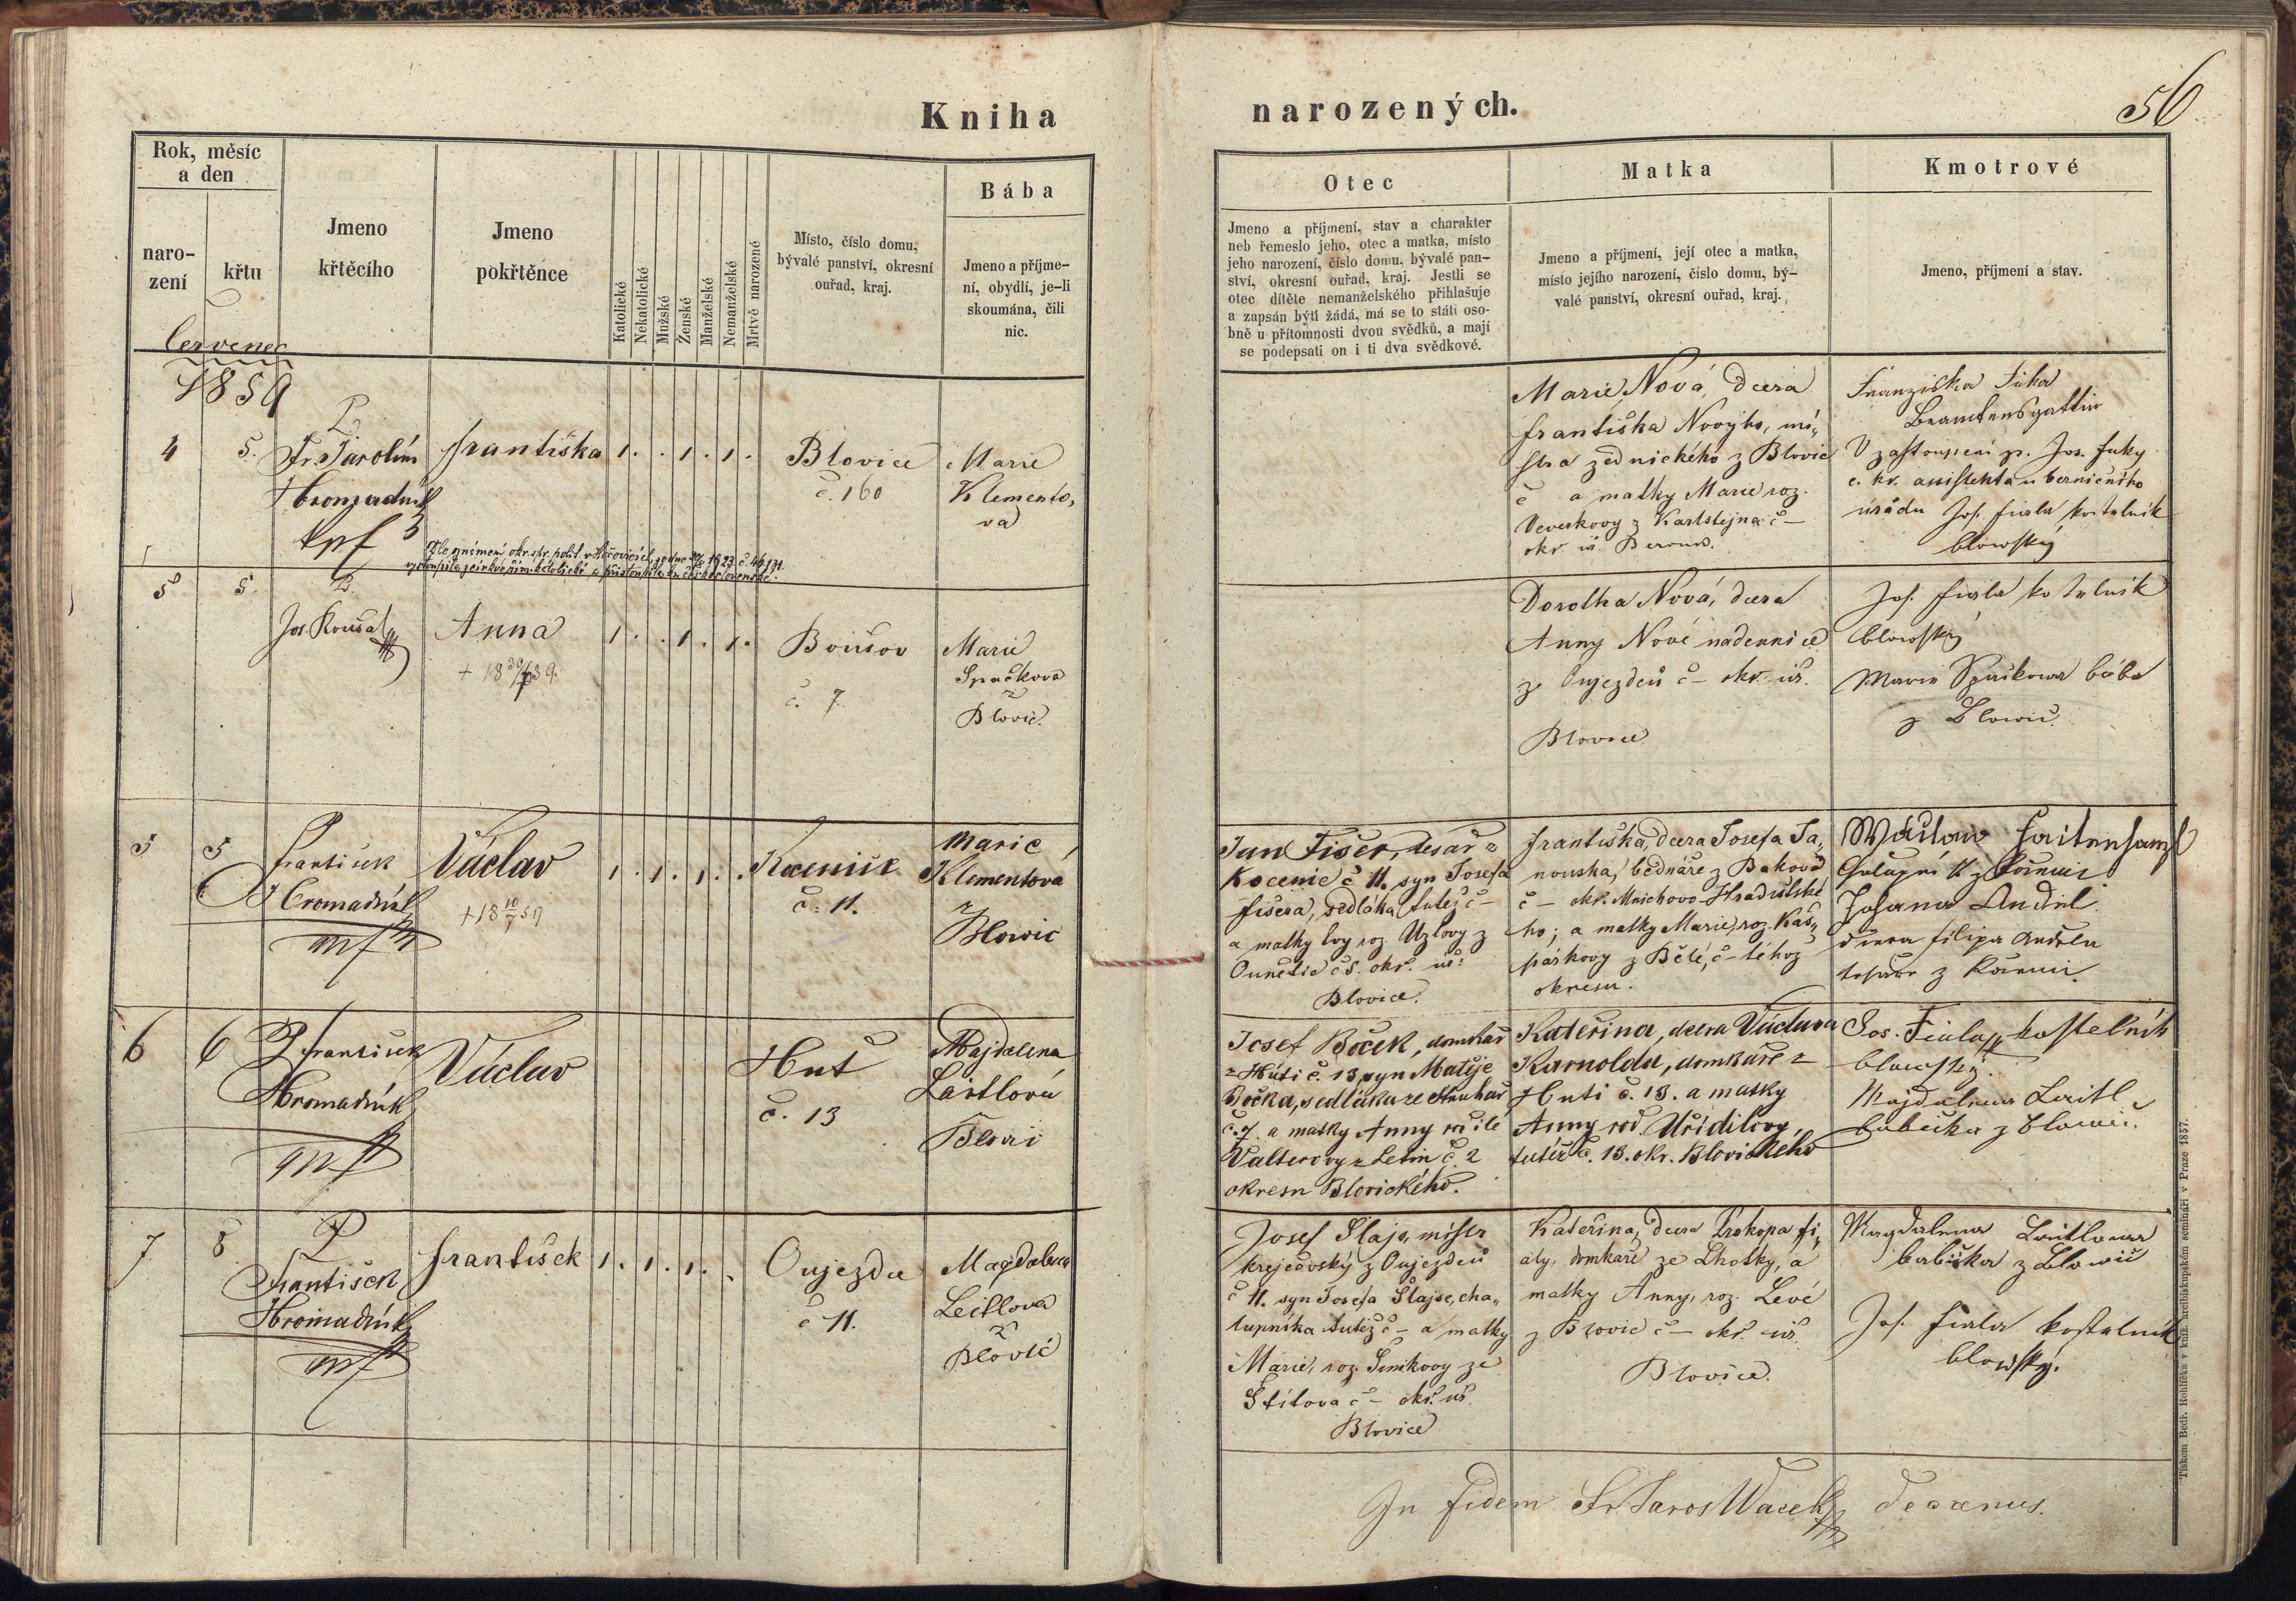 Kniha
narozených.
56
Rok, měsíc
a den
naro-
zení
křtu
Jmeno
křtěcího
Jmeno
pokřtěnce
Katolické
Nekatolické
Mužské
Ženské
Manželské
Nemanželské
Mrtvě narozené
Místo, číslo domu,
bývalé panství, okresní
ouřad, kraj.
Bába
Jmeno a příjme-
ní, obydlí, je-li
skoumána, čili
nic.
Otec
Jmeno a příjmení, stav a charakter
neb řemeslo jeho, otec a matka, místo
jeho narození, číslo domu, bývalé pan-
ství, okresní ouřad, kraj. Jestli se
otec dítěte nemanželského přihlašuje
a zapsán býti žádá, má se to státi oso-
bně u přítomnosti dvou svědků, a mají
se podepsati on i ti dva svědkové.
Matka
Jmeno a příjmení, její otec a matka,
místo jejího narození, číslo domu, bý-
valé panství, okresní ouřad, kraj.
Kmotrové
Jmeno, příjmení a stav.
červenec
1859
4
5.
P
Hromadník
Františka
1 . . 1 . 1 .
Blovice
č. 160
Marie
Klemento,
va
Marie Nová, dcera
Františka Novýho, mi,,
stra zednického z Blovic
č a matky Marie roz.
Veverkovy z Karlštejna č –
okr. úř. Beroun.
Franziska Fuka
Beamtensgattin
V zastoupení p. Jos. Fuky
c. kr. assistenta u berničního
úřadu Jos. Fiala kostelník
blowský
5
5.
P.
Jos. Kousal
Anna
1 . . 1 . 1 .
Boušov
č. 7.
Marie
Špačkova
z
Blovic.
Dorotha Nová, dcera
Anny Nové nadennice
z Oujezdců č – okr. úř.
Blovice
Jos. Fiala kostelník
blowský
Marie Špačkowa bába
z Blowic.
5
5
P
František
Hromadník
mp
Václav
+ 18 10/7 59
1 . 1 . 1 . .
Kocenice
č. 11.
Marie
Klementová
z
Blowic
Jan Fišer, tesař z
Kocenic č 11. syn Josefa
Fišera, sedláka tutéž č –
a matky Evy roz. Uzlovy z
č 8. okr. úř.
Blovice.
Františka, dcera Josefa Ja,,
nouska, bednáře z Bakova
č – okr. Mnichovo-Hradištské
ho; a matky Marie, roz. Kaš,,
párkovy z Bělé, č – téhož
okresu.
Johana Anděl
dcera Filipa Anděla
tesaře z
6
6
P. František
Hromadník
mp
Václav
Huť
č. 13
Majdalena
Laitlová
z
Blovic
Josef Boček, domkář
z Hutí č. 13, syn Matěje
Bočka, sedláka ze Struhař
č. 7. a matky Anny rozilé
Valterovy z Letin č. 2
okresu Blovického.
Kateřina, dcera Václava
Karnolda, domkáře z
Huti č. 13. a matky
Anny roz. Uřidilovy,
tutéž č. 13. okr. Blovického
Jos. Fiala, kostelník
blowský.
Majdalena Laitl
babička z Blowic.
7
8
P
František
Hromadník
mp
František
1 . 1 . 1 . .
Oujezda
č 11.
Magdalena
Leitlova
z
Blovic
Josef Šlajs, mistr
krejčovský z Oujezdců
č 11. syn Josefa Šlajse, cha,,
lupníka tutéž č – a matky
Marie, roz. Šimkovy ze
Štítova č – okr. úř.
Blovice
Kateřina, dcera Prokopa Fi,,
aly, domkáře ze Lhotky, a
matky Anny, roz. Levé
z Blovic č – okr. úř.
Blovice.
Magdalena Laitlowa
babička z Blowic
Jos. Fiala kostelník
blowský.
In fidem Fr. Jaros. Wacek decanus.
Tiskem Bedř. Rohlíčka v kníž. arcibiskupském semináři v Praze 1857.